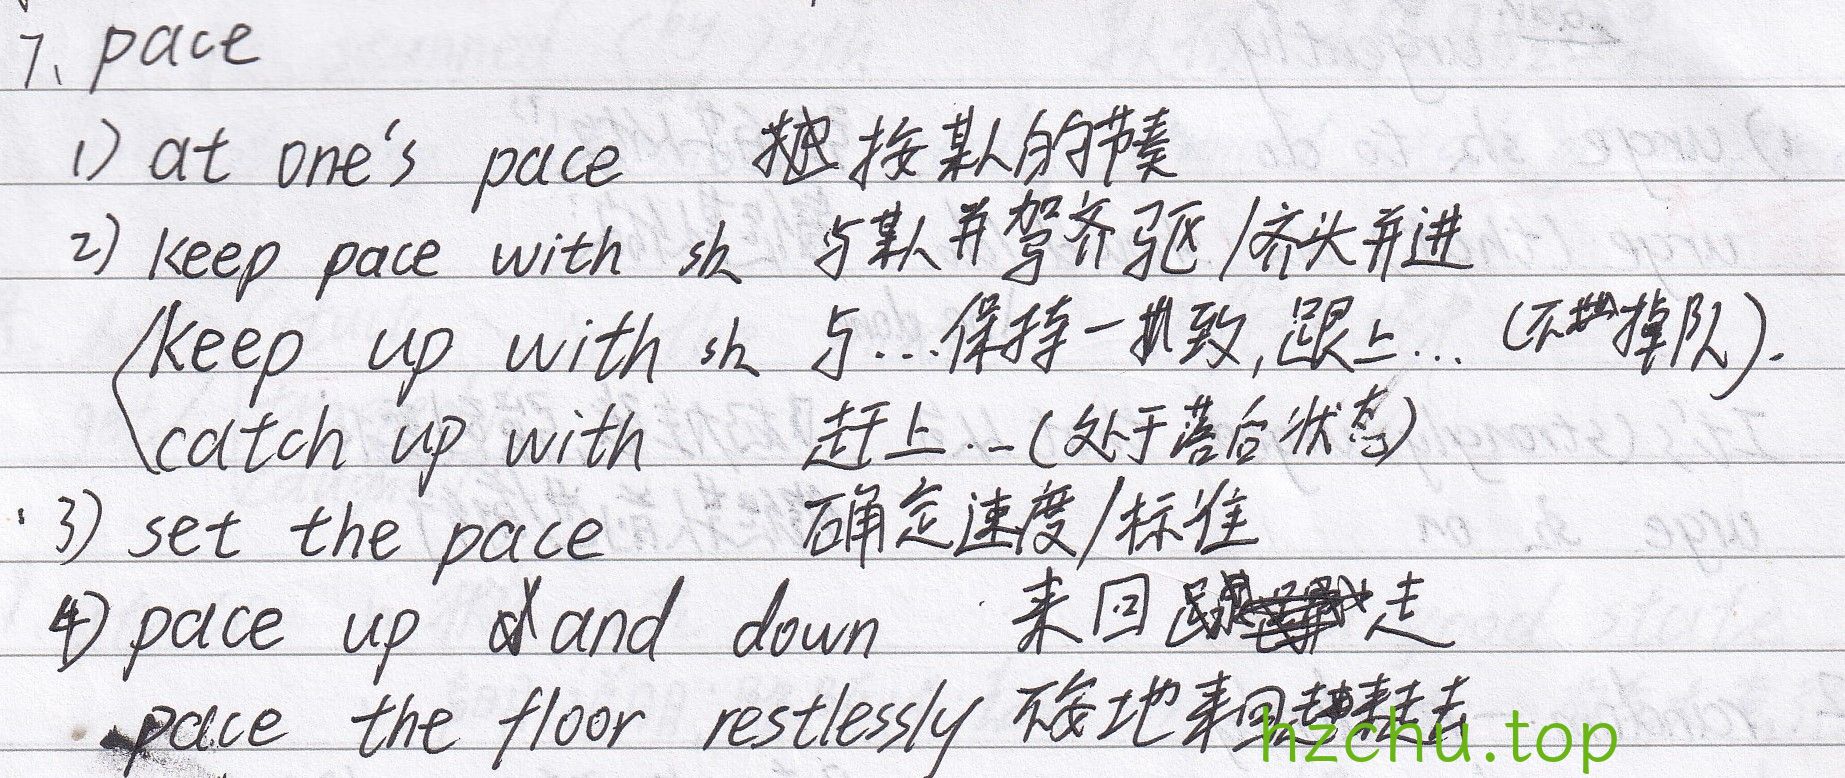 7、pace
1) at one's pace 按某人的节奏
2) keep pace with sb 与某人并驾齐驱/齐头并进
keep up with sb 与...保持一致,跟上...(不掉队).
catch up with 赶上...(处于落后状态)
3) set the pace 确定速度/标准
4) pace up and down 来回走
pace the floor restlessly 不安地来回走去
hzchu.top